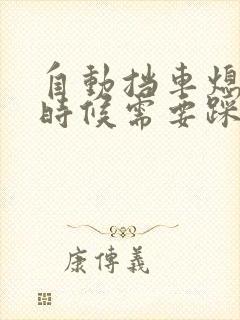 自動挡車熄
時候需要踩
康傳義